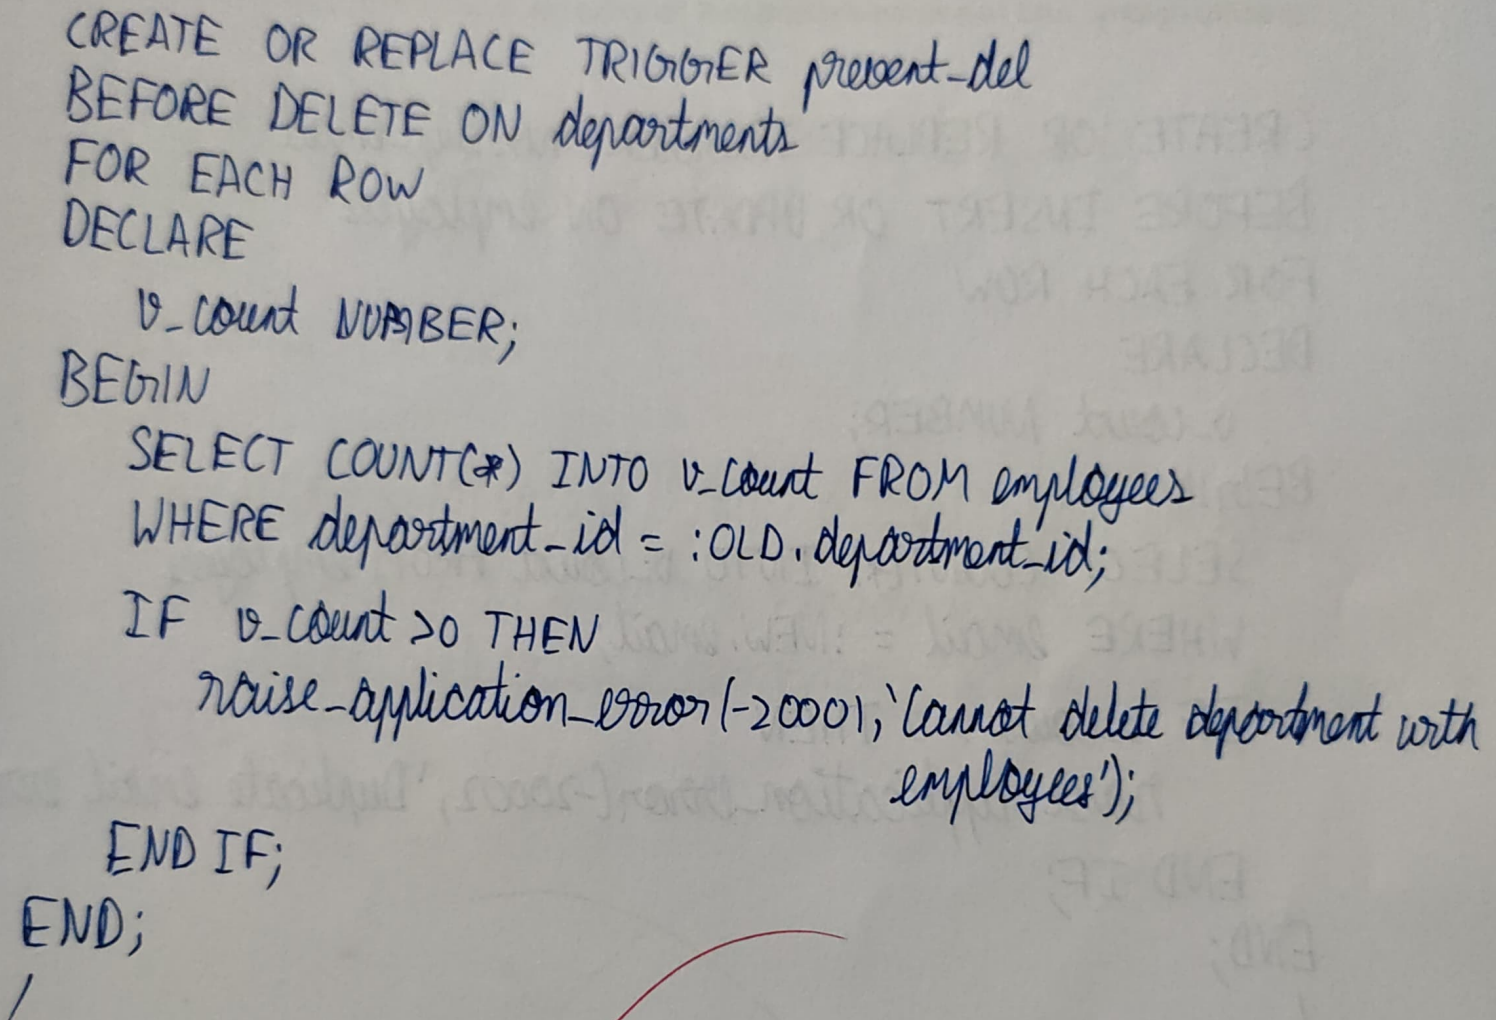 CREATE OR REPLACE TRIGGER prevent_del
BEFORE DELETE ON departments
FOR EACH ROW
DECLARE
v_count NUMBER;
BEGIN
SELECT COUNT(*) INTO v_count FROM employees
WHERE department_id = :OLD.department_id;
IF v_count >0 THEN
raise_application_error(-20001,'Cannot delete department with
employees');
END IF;
END;
/